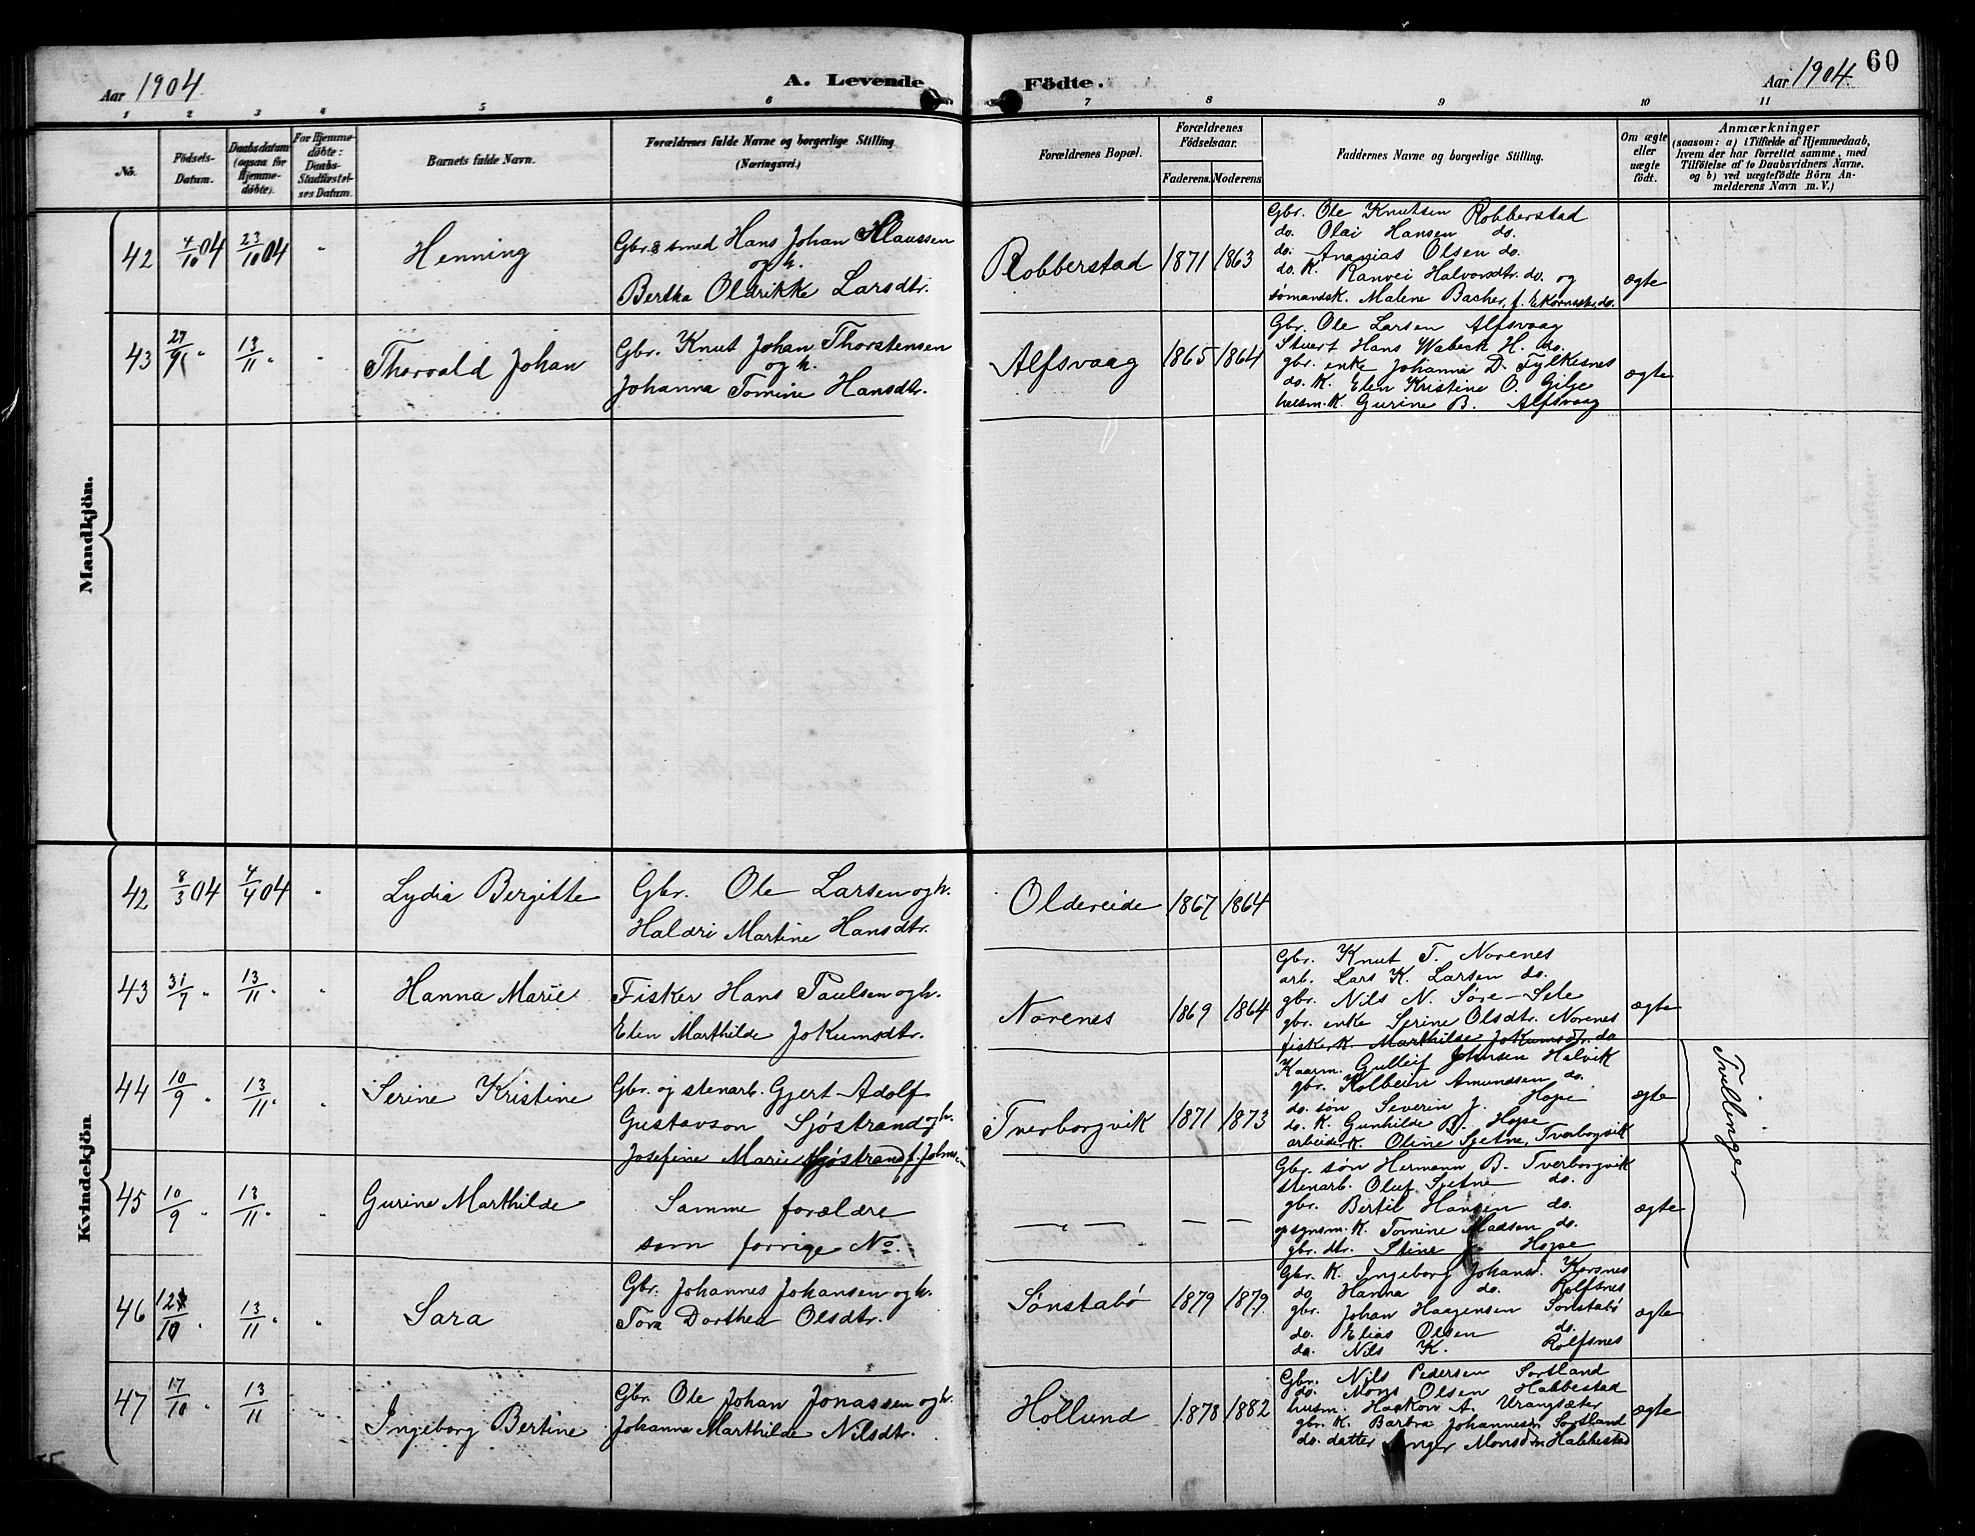 60
Aar 1904. A. Levende Födte. Aar 1904.
1 2 3 4 5 6 7 8 9 10 11
No. Födsels-Datum. Daabsdatum (ogsaa for Hjemmedöbte). For Hjemmedöbte: Daabs-Stadfæstelses Datum. Barnets fulde Navn. Forældrenes fulde Navne og borgerlige Stilling (Næringsvei.) Forældrenes Bopæl. Forældrenes Födselsaar. Faderens. Moderens Faddernes Navne og borgerlige Stilling. Om ægte eller uægte födt. Anmærkninger
(saasom: a) i Tilfælde af Hjemmedaab,
hvem der har forrettet samme, med
Tilföielse af to Daabsvidners Navne.
og b) ved uægtefödte Börn An-
melderens Navn m. V.)
Mandkjön.
42 4/10 04 23/10 04 " Henning
Gbr. & smed Hans Johan Klaussen
og h.
Bertha Oldrikke Larsdtr.
Robberstad 1871 1863
Gbr. Ole Knutsen Robberstad
do. Olai Hansen do.
do. Ananias Olsen do.
do. K. Ranvei Halvorsdtr. do. og
sømandsk. Malene Bacher, f. do.
ægte
43 27/9 " 13/11 " " Thorvald Johan
Gbr. Knut Johan Thorstensen
og h.
Johanna Tomine Hansdtr.
Alfsvaag 1865 1864
Gbr. Ole Larsen Alfsvaag
Stuert Hans Wabeck H. do.
gbr. enke Johanna D. Fylkesnes
do. K. Elen Kristine O. Gilje
husm. K. Gurine B. Alfsvaag
ægte
Kvindekjön
42 8/3 04 4/4 04 " Lydia Bergitte
Gbr. Ole Larsen og h.
Haldri Martine Hansdtr.
Oldereide 1867 1864
43 31/7 " 13/11 " " Hanna Marie
Fisker Hans Paulsen og h.
Elin Marthilde Jokumsdtr.
Norenes 1869 1864
Gbr. Knut T. Norenes
arb. Lars K. Larsen do.
gbr. Nils N. Søre-Sele
gbr. enke Serine Olsdtr. Norenes
fisker K. Marthilde Jokumsdtr. do
ægte
44 10/9 " 13/11 " " Serine Kristine
Gbr. og stenarb. Gjert Adolf
Gustavson Sjøstrand og h.
Josefine Marie Sjøstrand f. Johns
Tverborgvik 1871 1873
Kaarm. Gulleif Johnsen Halvik
gbr. Kolbein Amundsen do.
do. søn Severin J. Hope
do. K. Gunhilde B. Hope
arbeider K. Oline Sjetne, Tverborgvik
ægte
Tvillinger
45 10/9 " 13/11 " " Gurine Marthilde
Samme forældre
som forrige No.
— " — — —
Gbr. søn Hermann B. Tverborgvik
stenarb. Oluf Sjetne do.
gbr. Bertil Hansen do.
opsynsm. K. Tomine Madsen do.
gbr. dtr. Stine J. Hope
ægte
46 12/10 " 13/11 " " Sara
Gbr. Johannes Johansen og h.
Tora Dorthea Olsdtr.
Sønstabø 1879 1879
Gbr. K. Ingeborg Johans. Korsnes
do. Hanna do. Rolfsnes
gbr. Johan Haagensen Sønstabø
do. Elias Olsen do.
do. Nils K. Rolfsnes
ægte
47 17/10 " 13/11 " Ingeborg Bertine
Gbr. Ole Johan Jonassen og h.
Johanna Marthilde Nilsdtr.
Hollund 1878 1882
Gbr. Nils Pedersen Sortland
do. Mons Olsen Habbestad
husm. Haakon A. Urangsæter
gbr. K. Barbra Johannesen Sortland
do. datter Inger Monsdtr. Habbestad
ægte